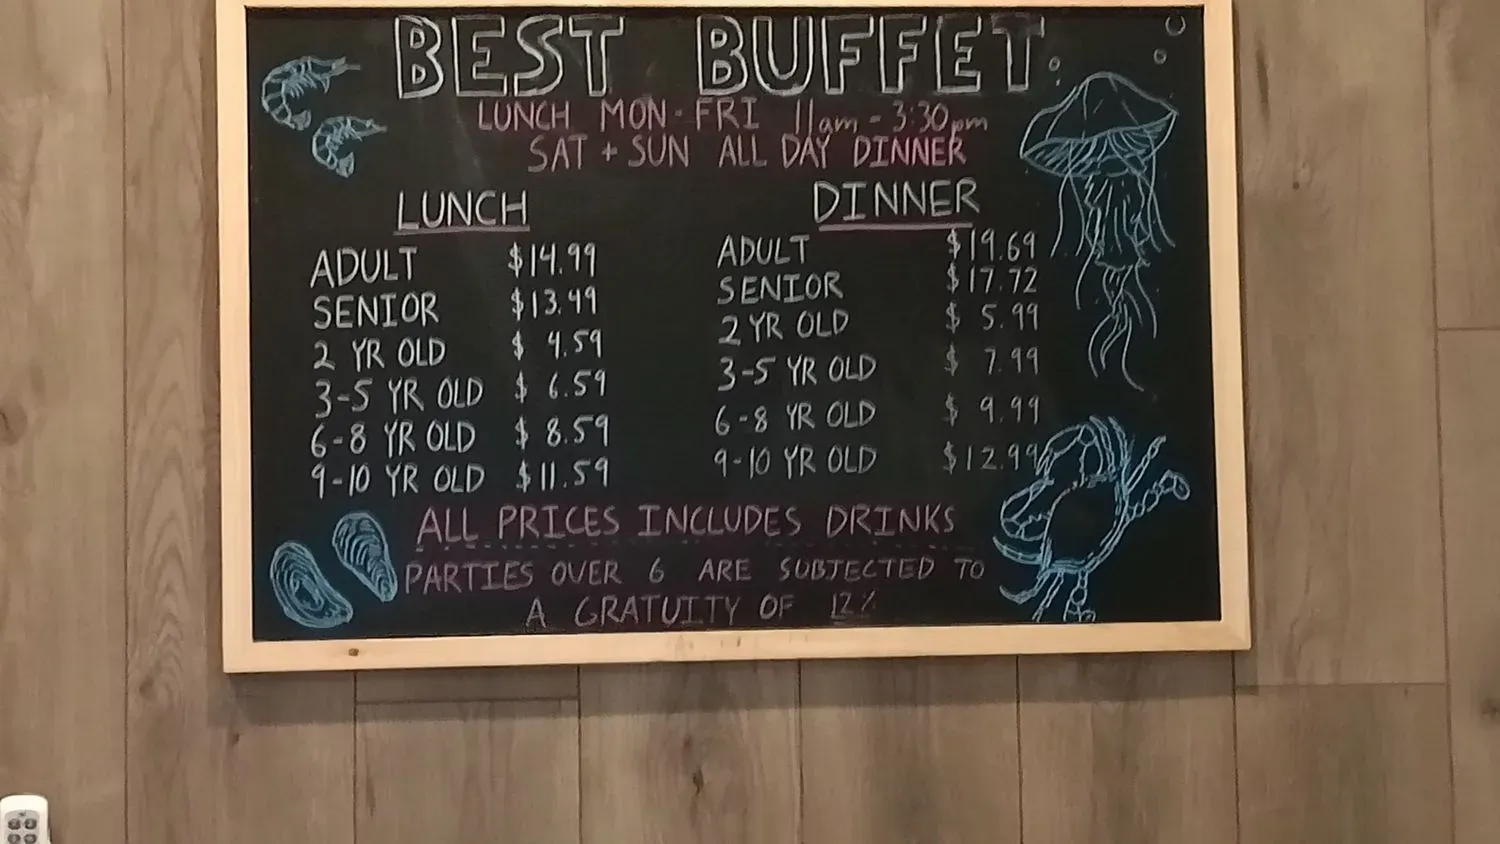 BEST BUFFET
LUNCH MON-FRI 11am - 3:30pm
SAT + SUN ALL DAY DINNER
LUNCH
ADULT $14.99
SENIOR $13.49
2 YR OLD $ 4.59
3-5 YR OLD $ 6.59
6-8 YR OLD $ 8.59
9-10 YR OLD $11.59
DINNER
ADULT $19.69
SENIOR $17.72
2 YR OLD $ 5.99
3-5 YR OLD $ 7.99
6-8 YR OLD $ 9.99
9-10 YR OLD $12.99
ALL PRICES INCLUDES DRINKS
PARTIES OVER 6 ARE SUBJECTED TO
A GRATUITY OF 12%